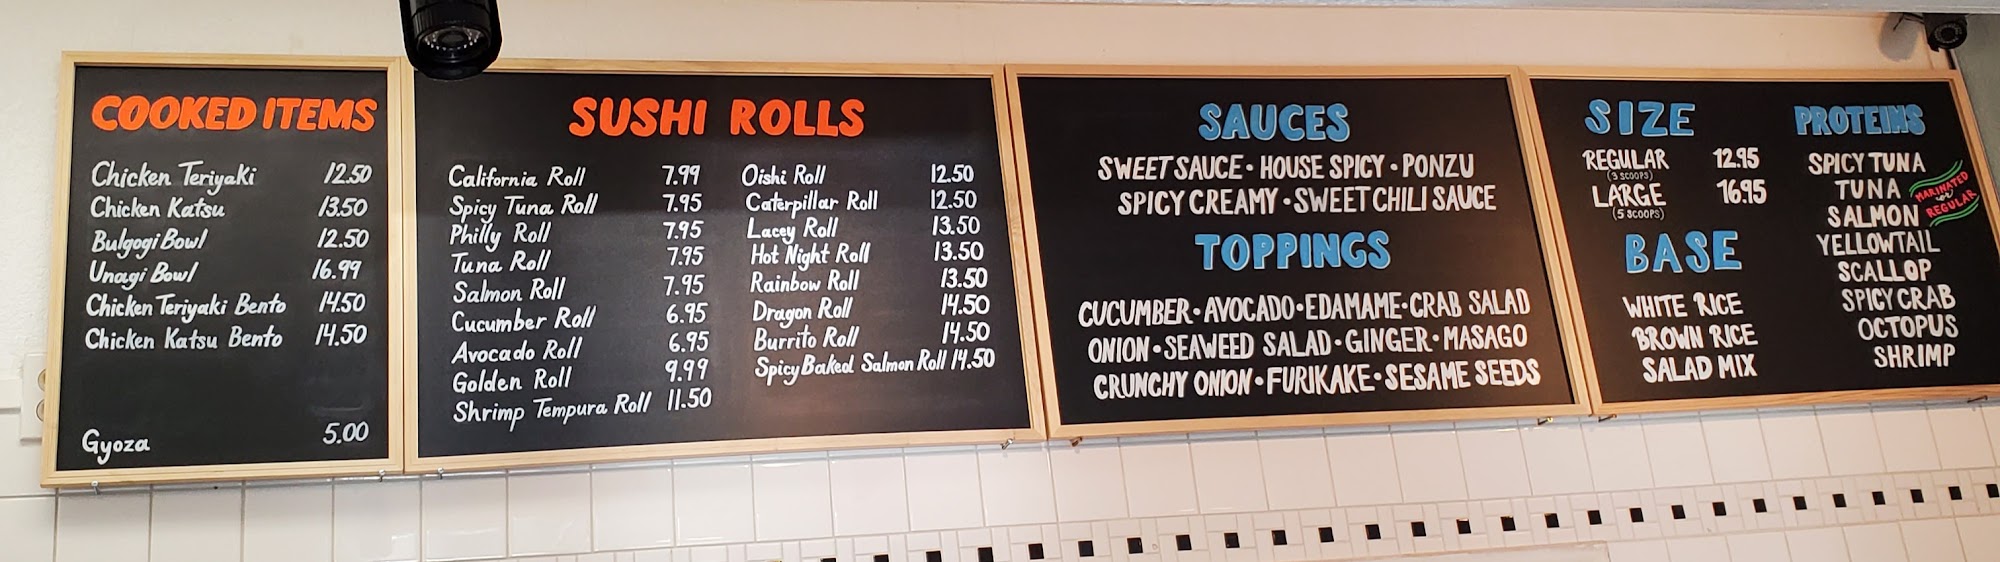 COOKED ITEMS
Chicken Teriyaki 12.50
Chicken Katsu 13.50
Bulgogi Bowl 12.50
Unagi Bowl 16.99
Chicken Teriyaki Bento 14.50
Chicken Katsu Bento 14.50
Gyoza 5.00
SUSHI ROLLS
California Roll 7.99
Spicy Tuna Roll 7.95
Philly Roll 7.95
Tuna Roll 7.95
Salmon Roll 7.95
Cucumber Roll 6.95
Avocado Roll 6.95
Golden Roll 9.99
Shrimp Tempura Roll 11.50
Oishi Roll 12.50
Caterpillar Roll 12.50
Lacey Roll 13.50
Hot Night Roll 13.50
Rainbow Roll 13.50
Dragon Roll 14.50
Burrito Roll 14.50
Spicy Baked Salmon Roll 14.50
SAUCES
SWEET SAUCE • HOUSE SPICY • PONZU
SPICY CREAMY • SWEET CHILI SAUCE
TOPPINGS
CUCUMBER • AVOCADO • EDAMAME • CRAB SALAD
ONION • SEAWEED SALAD • GINGER • MASAGO
CRUNCHY ONION • FURIKAKE • SESAME SEEDS
SIZE
REGULAR 12.95
(3 SCOOPS)
LARGE 16.95
(5 SCOOPS)
BASE
WHITE RICE
BROWN RICE
SALAD MIX
PROTEINS
SPICY TUNA
TUNA
SALMON
MARINATED
or
REGULAR
YELLOWTAIL
SCALLOP
SPICY CRAB
OCTOPUS
SHRIMP